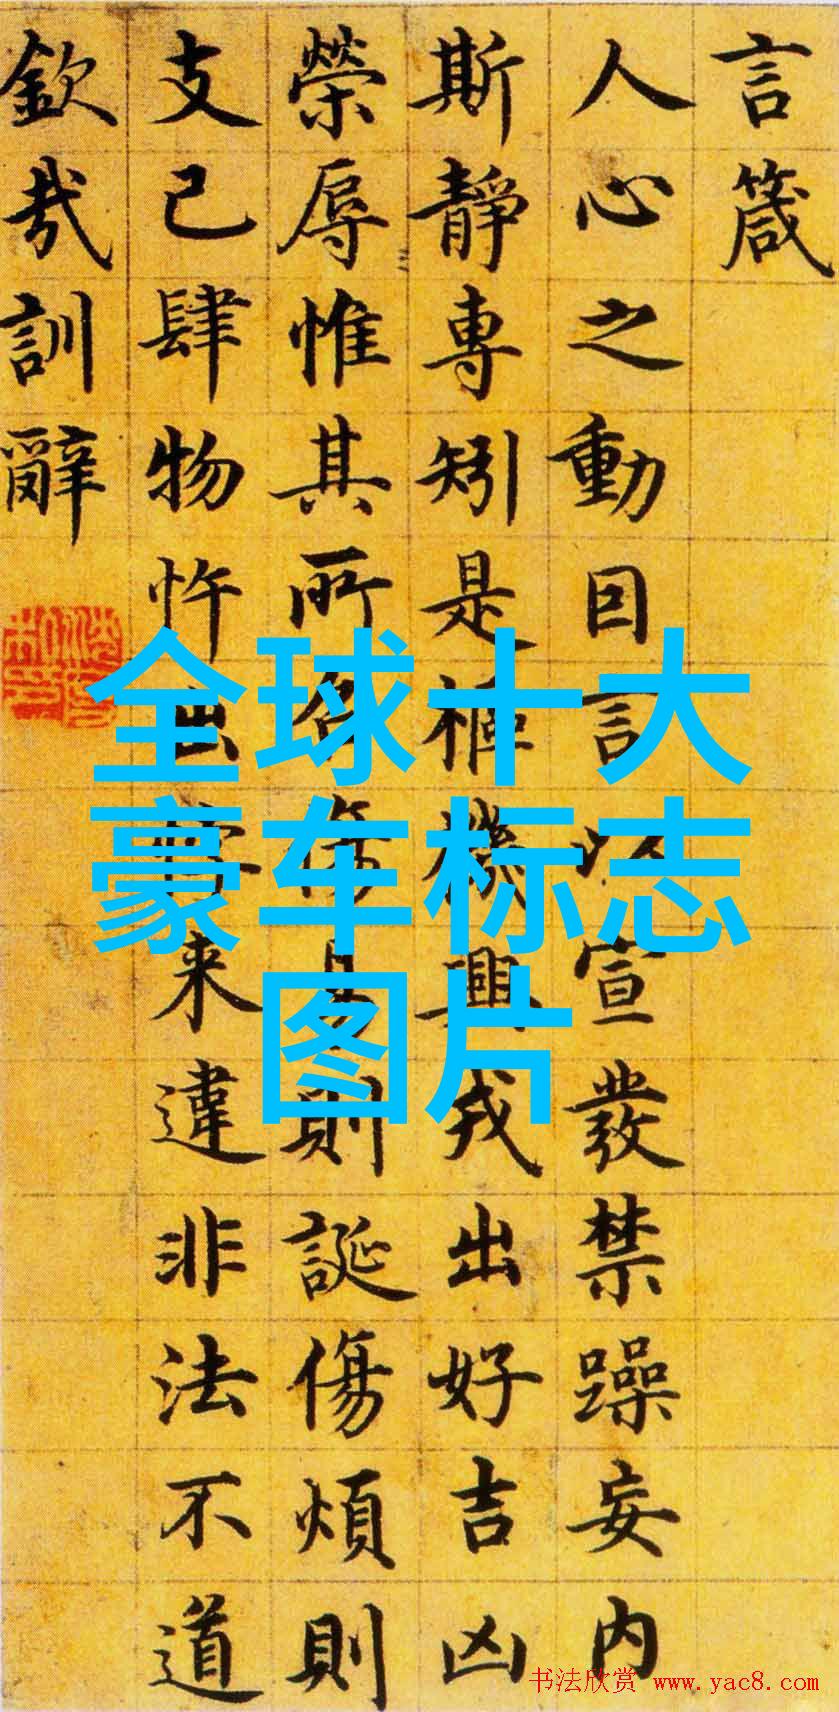 言箴
人心之動因言以宣發禁躁妄内
斯靜專矧是樞機興戎出好吉凶
榮辱惟其所召傷易則誕傷煩則
支己肆物忤出悖来違非法不道
欽哉訓辭
全球十大
豪车标志
图片
书法欣赏 www.yac8.com